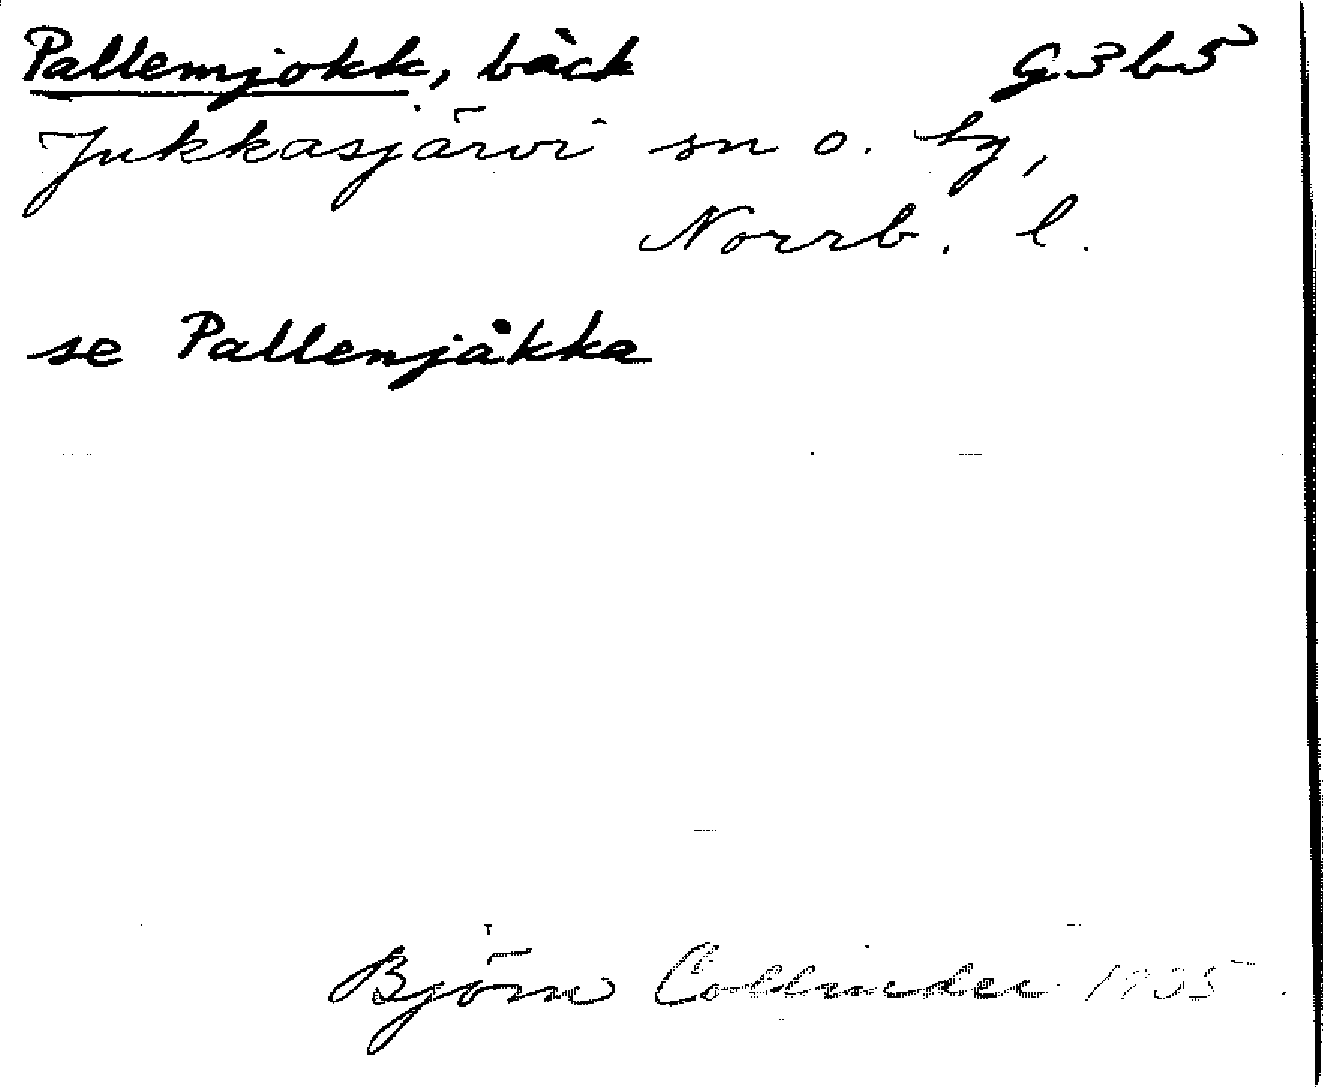 Pallemjokk, bäck G3b5
Jukkasjärvi sn o. by,
Norrb. l.
se Pallenjåkka
Björn Collinder 1935